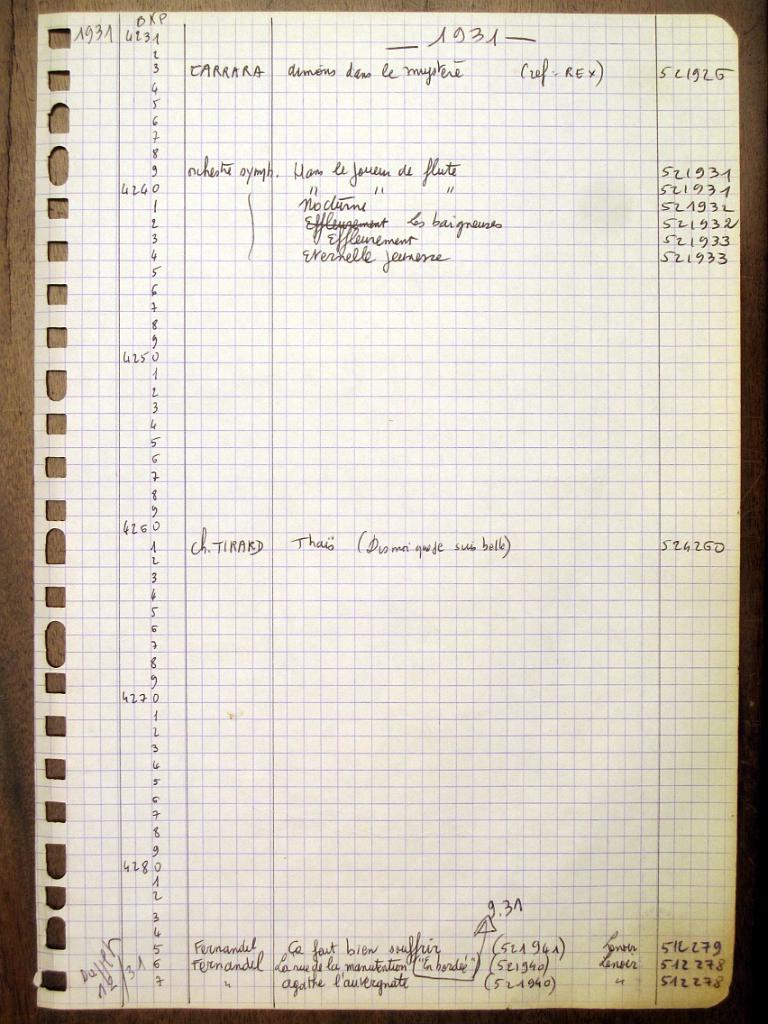 BKP
1931 4231 — 1931 —
2
3 CARRARA aimons dans le mystère (ref = REX) 521925
4
5
6
7
8
9 orchestre symph. Hans le joueur de flute 521931
4240 " " " 521931
1 Nocturne 521932
2 Effleurement Les baigneuses 521932
3 Effleurement 521933
4 Eternelle jeunesse 521933
5
6
7
8
9
4250
1
2
3
4
5
6
7
8
9
4260
1 Ch. TIRARD Thaïs (Dis moi que je suis belle) 524260
2
3
4
5
6
7
8
9
4270
1
2
3
4
5
6
7
8
9
4280
1
2
3 9.31
4
5 Fernandel Ça fait bien souffrir (521941) Lenoir 512279
6 Fernandel La rue de la manutention ("En bordée") (521940) Lenoir 512278
7 " agathe l'auvergnate (521940) " 512278